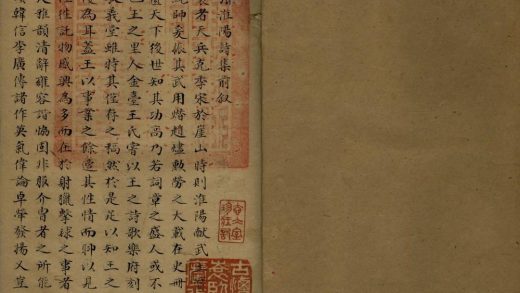 淮陽詩集前叙
者天兵克季宋於崖山時則淮陽献武王
帥奕張其武用熸趙燼勲勞之大載在史册
天下後世知其功高乃若詞章之盛人或不
王之里人金臺王氏嘗以王之詩歌樂府刻
義堂雖時其僅存之稿然於是足以知王之
為耳蓋王以事業之餘適其性情而聊以見
性託物感興為多而在於射獵擊球之事者
雅韻清辭雍容諧協固非服介胄者之所能
韓信李廣傳諸作英氣偉論卓犖發揚又豈